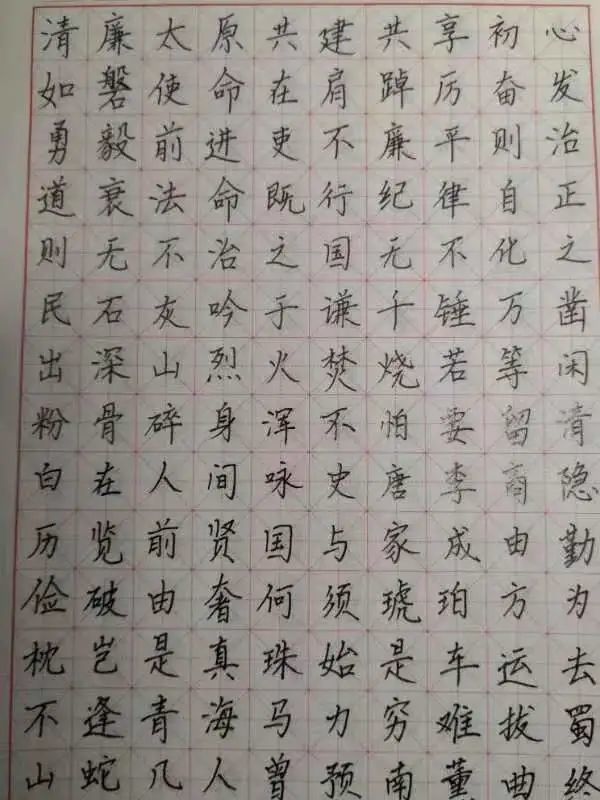 清廉太原共建共享初心
如磐使命在肩踔厉奋发
勇毅前进吏不廉平则治
道衰法命既行纪律自正
则无不治之国无不化之
民石灰吟于谦千锤万凿
出深山烈火焚烧若等闲
粉骨碎身浑不怕要留清
白在人间咏史唐李商隐
历览前贤国与家成由勤
俭破由奢何须琥珀方为
枕岂是真珠始是车运去
不逢青海马力穷难拔蜀
山蛇几人曾预南董曲终